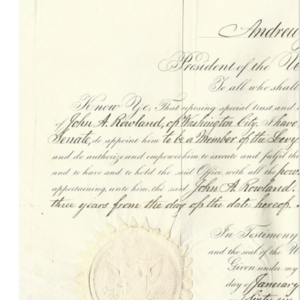 Andrew
President of the U
To all who shall
Know Ye, That reposing special trust and
of John A. Rowland, of Washington City, I have
Senate, do appoint him to be a Member of the Levy
and do authorize and empower him to execute and fulfil the
and to have and to hold the said Office with all the pow
appertaining, unto him, the said John A. Rowland
three years from the day of the date hereof.
In Testimony
and the seal of the U
Given under my
day of January
Sixty six